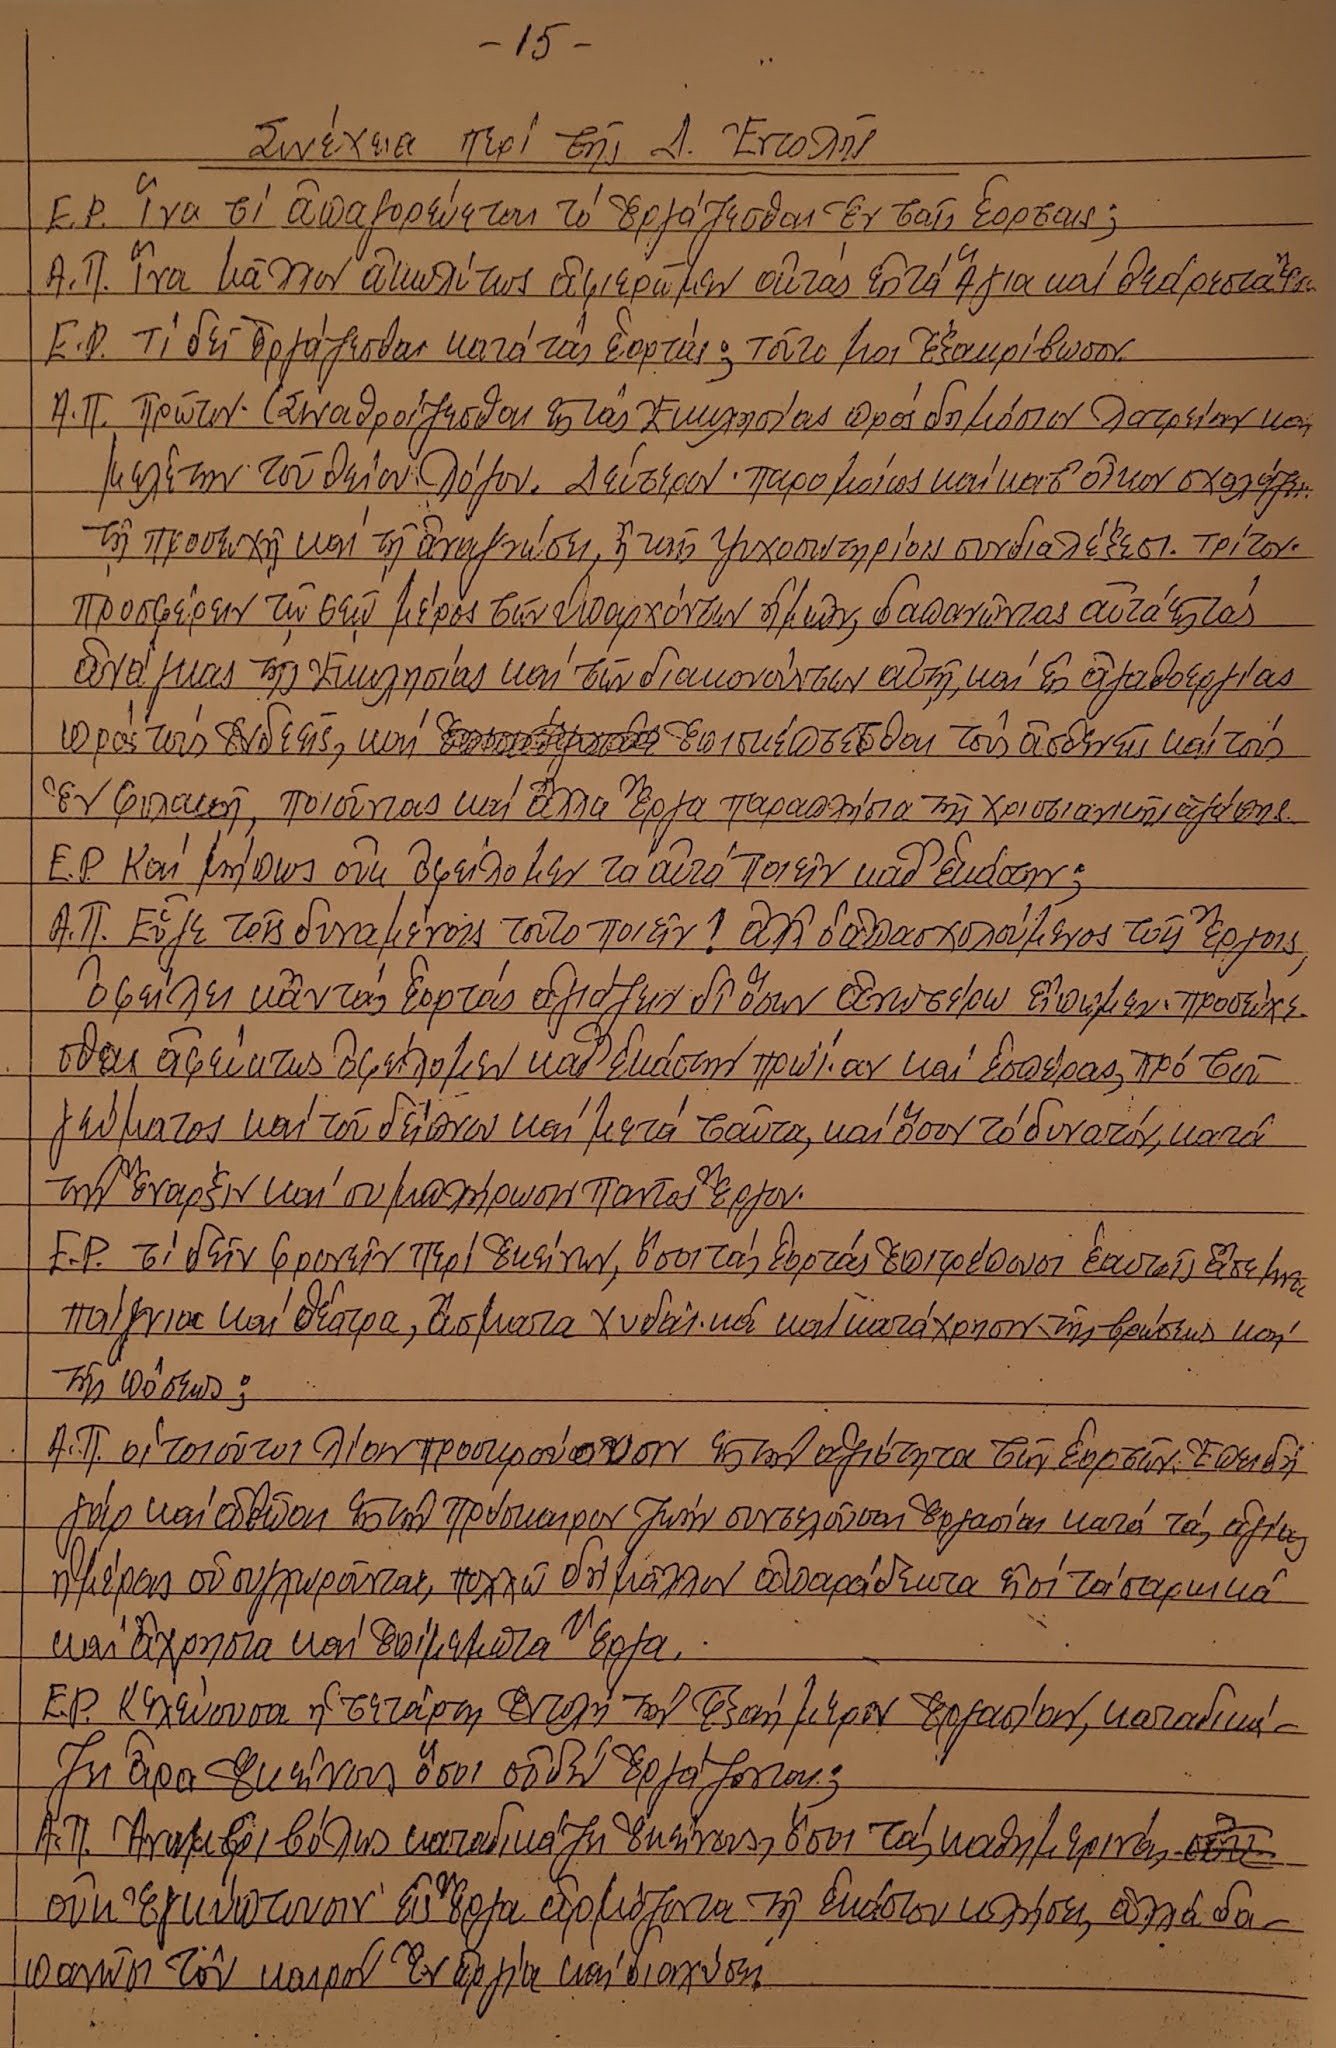 -15-
Συνέχεια περί τῆς Δ. Ἐντολῆς
Ε.Ρ. Ἵνα τί ἀπαγορεύεται τό ἐργάζεσθαι ἐν ταῖς ἑορταῖς;
Α.Π. Ἵνα μᾶλλον ἀκωλύτως ἀφιερῶμεν αὐτάς εἰς τά Ἅγια καί θεάρεστα
Ε.Ρ. Τί δεῖ ἐργάζεσθαι κατά τάς ἑορτάς; τοῦτο μοι ἐξακρίβωσον.
Α.Π. Πρῶτον· (Συναθροίζεσθαι εἰς τάς Ἐκκλησίας πρός δημόσιον λατρείαν καί
μελέτην τοῦ θείου λόγου. Δεύτερον· παρομοίως καί κατ' οἶκον σχολάζειν
τῇ προσευχῇ καί τῇ ἀναγνώσει, ἤ ταῖς ψυχοσωτηρίοις συνδιαλέξεσι. Τρίτον·
προσφέρειν τῷ Θεῷ μέρος τῶν ὑπαρχόντων ἡμῶν, δαπανῶντας αὐτά εἰς τάς
ἀνάγκας τῆς Ἐκκλησίας καί τῶν διακονούντων αὐτῇ, καί εἰς ἀγαθοεργίας
πρός τούς ἐνδεεῖς, καί ἐπισκέπτεσθαι τούς ἀσθενεῖς καί τούς
ἐν φυλακῇ, ποιοῦντας καί ἄλλα ἔργα παραπλήσια τῆς χριστιανικῆς ἀγάπης.
Ε.Ρ. Καί μήπως οὐκ ὀφείλομεν τά αὐτά ποιεῖν καθ' ἑκάστην;
Α.Π. Εὖγε τοῖς δυναμένοις τοῦτο ποιεῖν! ἀλλ' ὁ ἀπασχολούμενος τοῖς ἔργοις,
ὀφείλει κἄν τάς ἑορτάς ἁγιάζειν δι' ὅσων ἀνωτέρω εἴπωμεν· προσεύχε-
σθαι ἀφεύκτως ὀφείλομεν καθ' ἑκάστην πρωΐ.αν καί ἑσπέρας, πρό τοῦ
γεύματος καί τοῦ δείπνου καί μετά ταῦτα, καί ὅσον τό δυνατόν, κατά
τήν ἔναρξιν καί συμπλήρωσιν παντός ἔργου.
Ε.Ρ. τί δεῖν φρονεῖν περί ἐκείνων, ὅσοι τάς ἑορτάς ἐπιτρέπουσι ἑαυτοῖς
παίγνια καί θέατρα, ἄσματα χυδαϊ.κά καί κατάχρησιν τῆς βρώσεως καί
τῆς πόσεως;
Α.Π. οἱ τοιοῦτοι λίαν προσκρούουσιν εἰς τήν ἁγιότητα τῶν ἑορτῶν. Ἐπειδή
γάρ καί εἰς τήν πρόσκαιρον ζωήν συντελοῦσαι ἐργασίαι κατά τάς ἁγίας
ἡμέρας οὐ συγχωροῦνται, πολλῷ δή μᾶλλον ἀπαράδεκτα εἰσί τά σαρκικά
καί ἄχρηστα καί ἐπίμεμπτα ἔργα.
Ε.Ρ. Κελεύουσα ἡ τετάρτη ἐντολή τήν ἑξαήμερον ἐργασίαν, καταδικά-
ζει ἆρα ἐκείνους ὅσοι οὐδέν ἐργάζονται;
Α.Π. Ἀναμφιβόλως καταδικάζει ἐκείνους, ὅσοι τάς καθημερινάς
οὐκ ἐγκύπτουσιν εἰς ἔργα ἁρμόζοντα τῇ ἑκάστου κλήσει, ἀλλά δα-
πανῶσι τόν καιρόν ἐν ἀργίᾳ καί διαχύσει